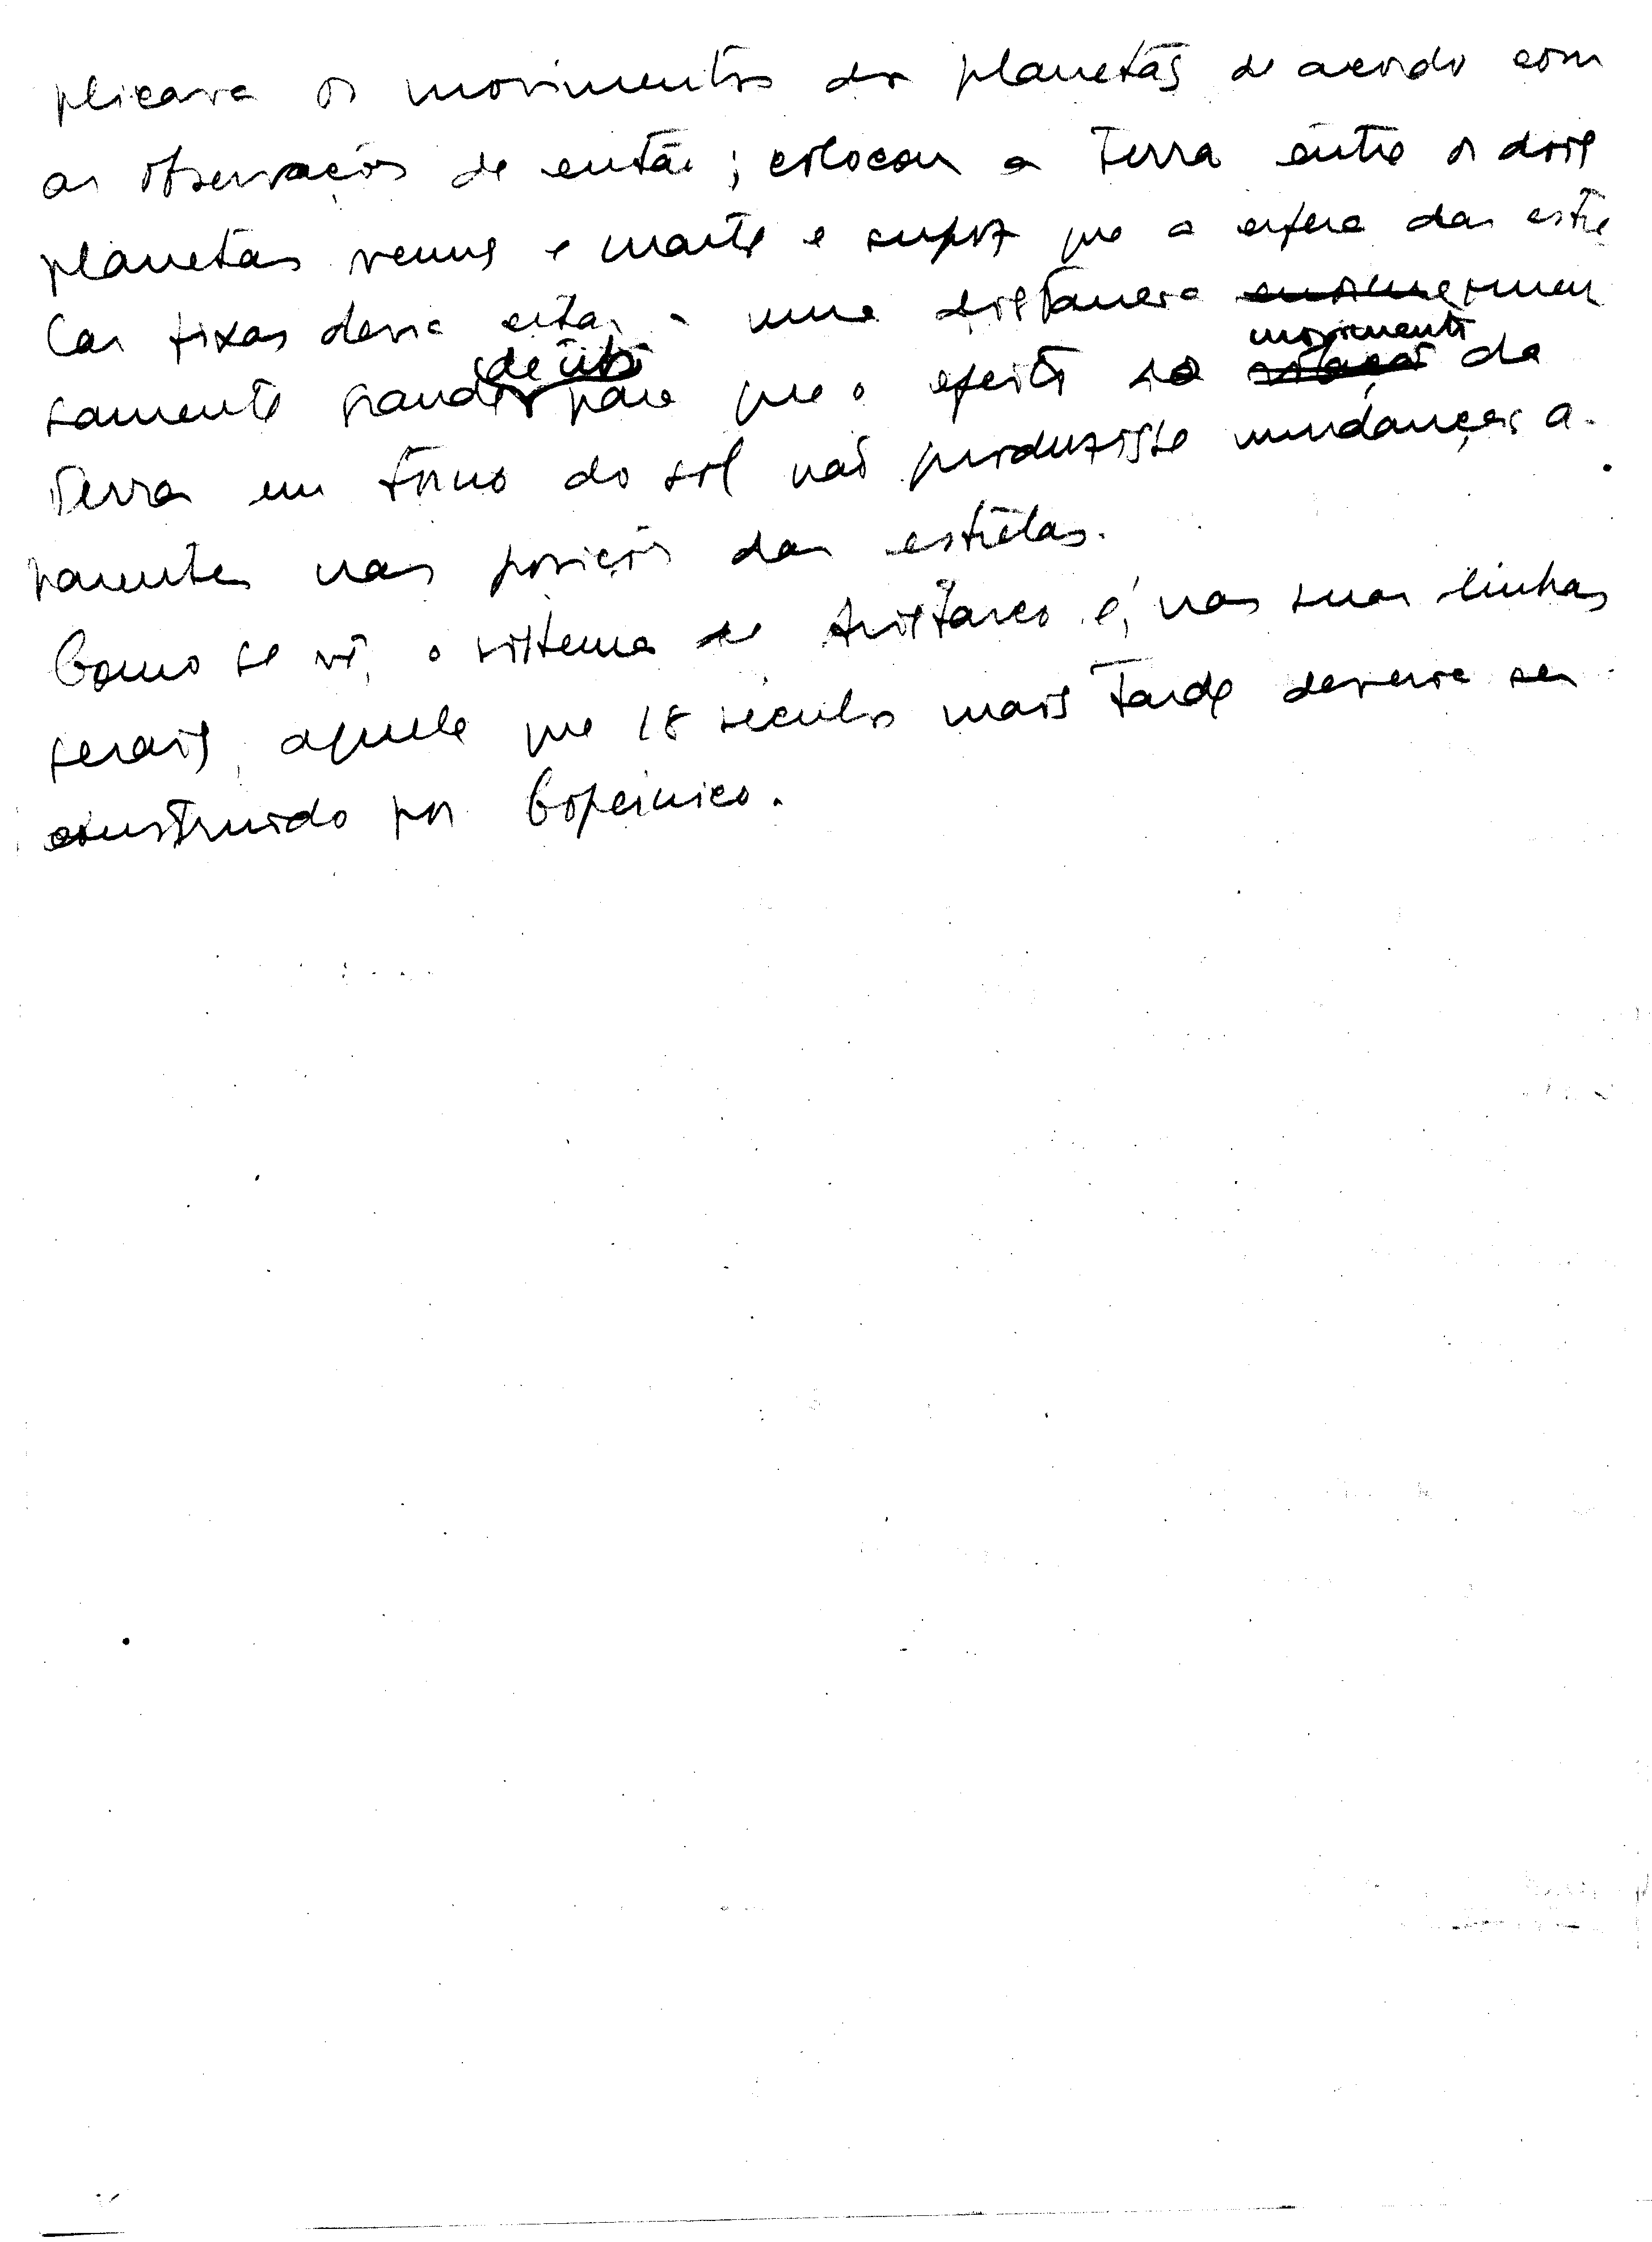 plicava os movimentos dos planetas de acordo com
as observações de então; colocou a Terra entre os dois
planetas venus e marte e supoz que a esfera das estre
las fixas devia estar a uma distancia enorme imen
samente grande para que o efeito do movimento da
Terra em torno do sol não produzisse mudanças a-
parentes nas posições das estrêlas.
Como se vê, o sistema de Aristarco é, nas suas linhas
gerais, aquele que 18 seculos mais tarde deveria ser
construido por Copérnico.